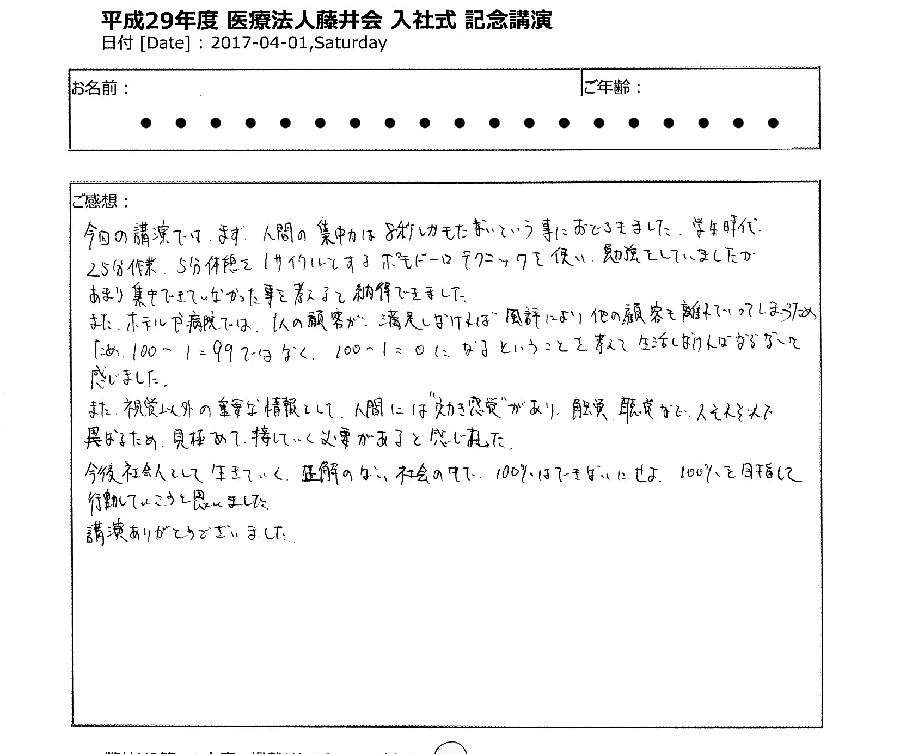 平成29年度 医療法人藤井会 入社式 記念講演
日付 [Date] : 2017-04-01,Saturday
お名前： ご年齢：
ご感想：
今回の講演では、まず、人間の集中力は8秒しかもたないという事におどろきました。学生時代、
25分作業、5分休憩を1サイクルとするポモドーロテクニックを使い、勉強をしていましたが
あまり集中できていなかった事を考えると納得できました。
また、ホテルや病院では、1人の顧客が、満足しなければ風評により他の顧客も離れていってしまうため
ため、100－1＝99ではなく、100－1＝0になるということを考えて生活しなければならないと
感じました。
また、視覚以外の重要な情報として、人間には"効き感覚"があり、触覚、聴覚など、人それぞれで
異なるため、見極めて、接していく必要があると感じました。
今後社会人として生きていく、正解のない、社会の中で、100%はできないにせよ、100%を目指して
行動していこうと思いました。
講演ありがとうございました。